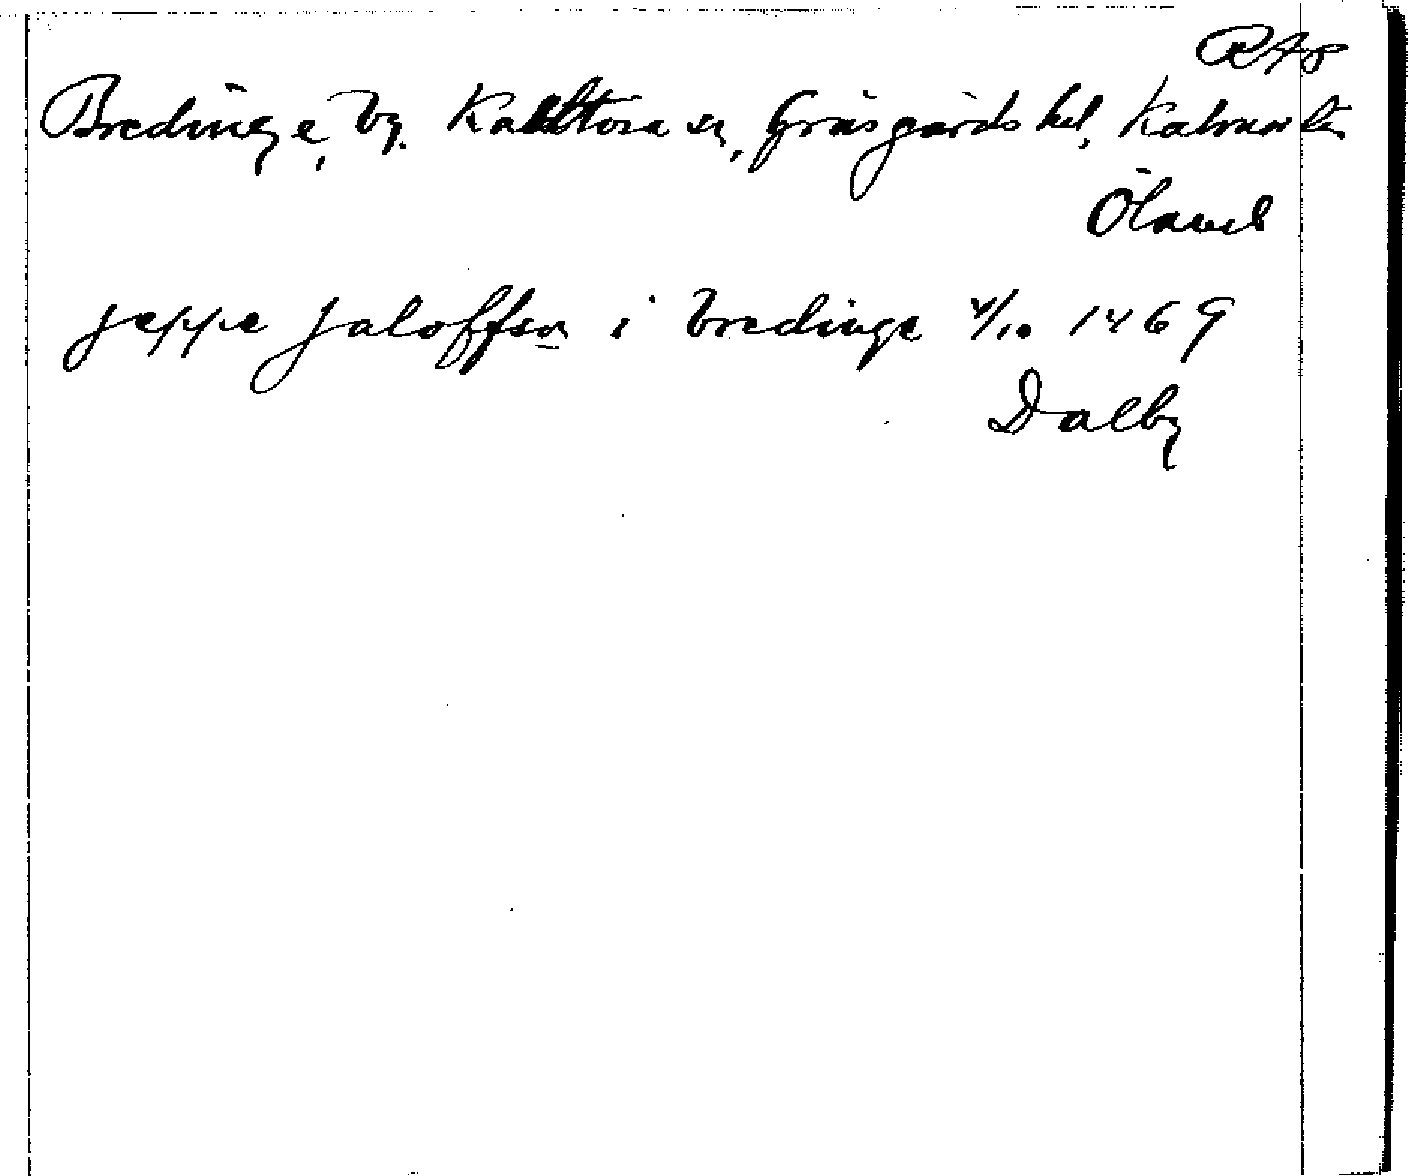 RAp
Bredinge, by. Kastlösa sn, Gräsgårds hd, Kalmar län
Öland
Jeppe Jaloffson i bredinge 4/10 1469
Dalby